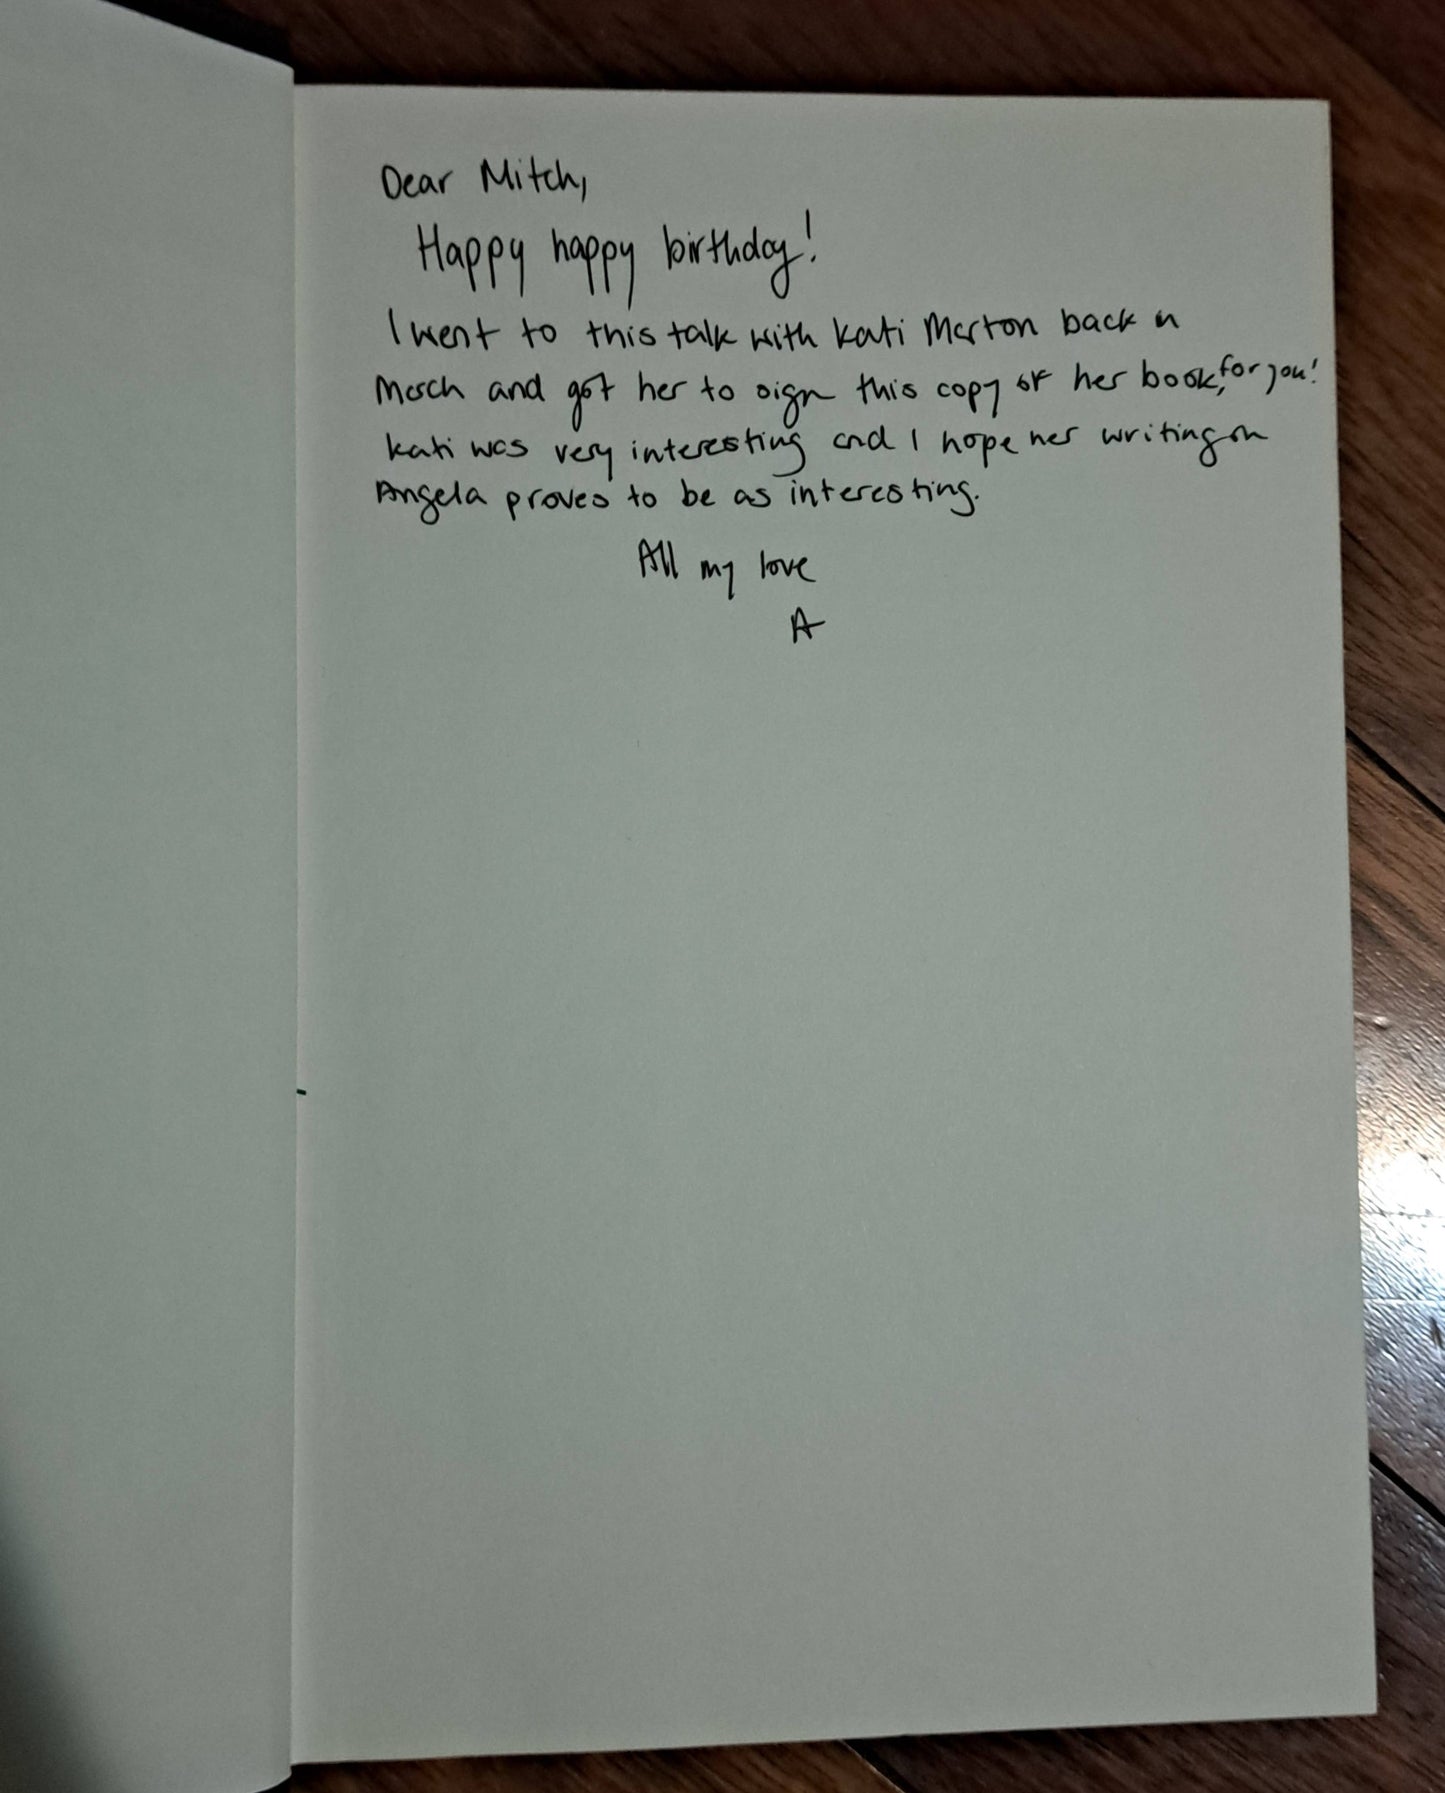 Dear Mitch,
Happy happy birthday!
I went to this talk with Kati Marton back in
March and got her to sign this copy of her book, for you!
Kati was very interesting and I hope her writing on
Angela proves to be as interesting.
All my love
A